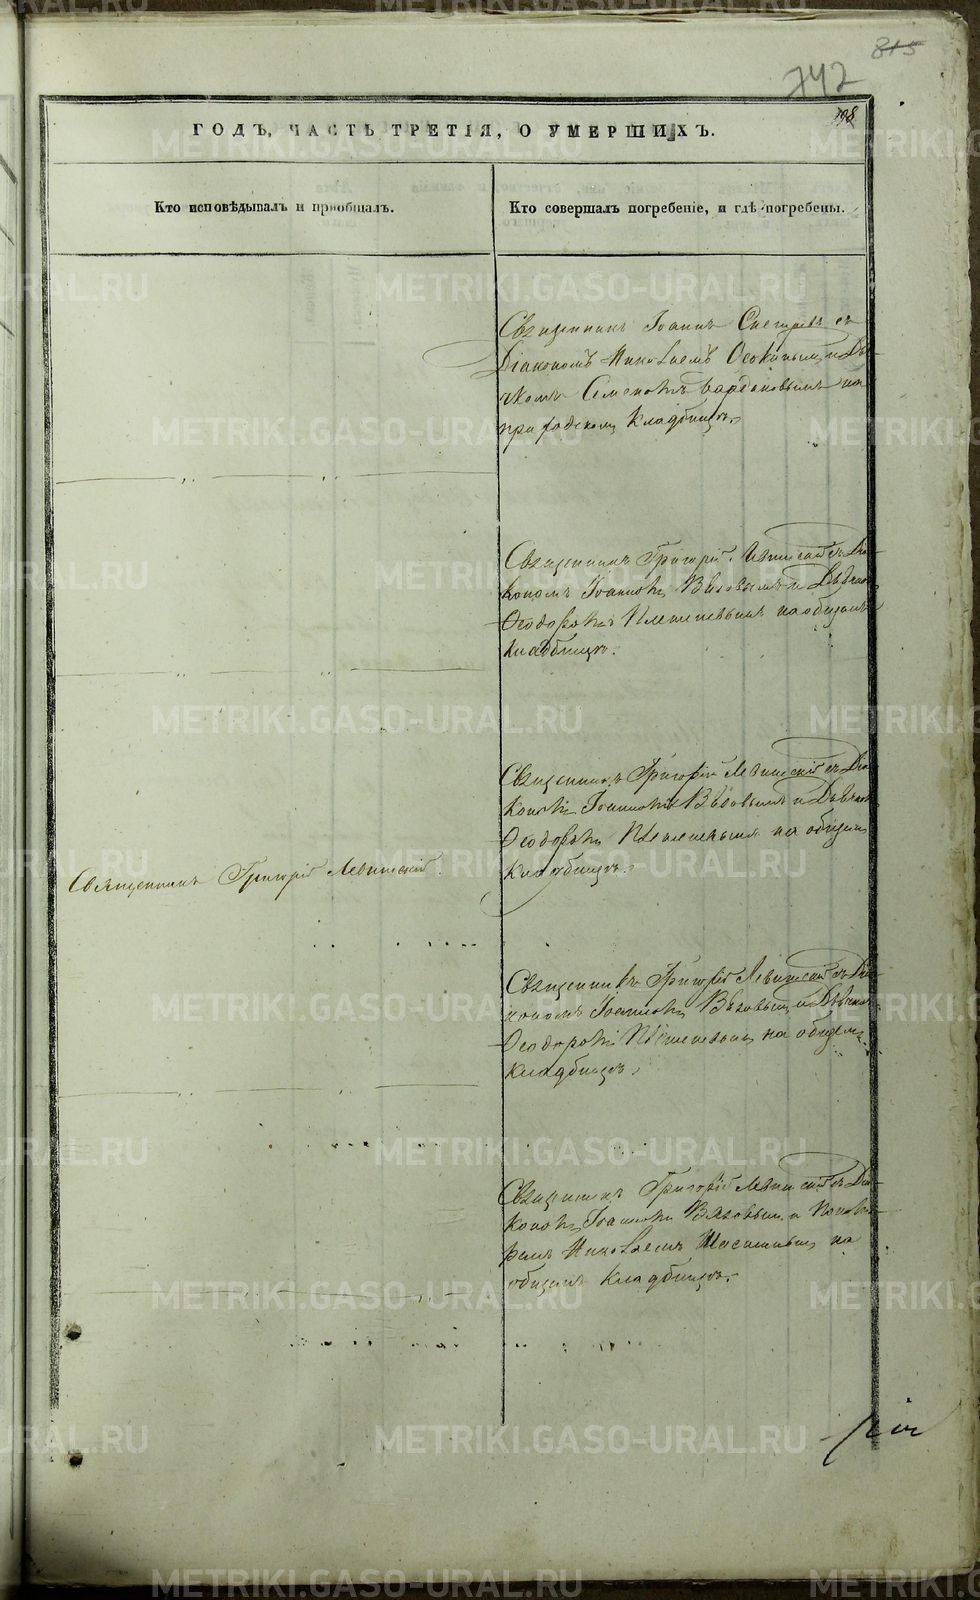 815
742
198
ГОДЪ, ЧАСТЬ ТРЕТІЯ, О УМЕРШИХЪ.
Кто исповѣдывалъ и пріобщалъ.
Кто совершалъ погребеніе, и гдѣ погребены.
Священникъ Іоаннъ съ
Діакономъ Николаемъ Осокинымъ и Дья-
чкомъ Семеномъ на
приходскомъ кладбищѣ.
Священникъ Григорій Левитскій съ Діа-
кономъ Іоанномъ и Дьячкомъ
Ѳеодоромъ на общемъ
кладбищѣ.
Священникъ Григорій Левитскій съ Діа-
кономъ Іоанномъ и Дьячкомъ
Ѳеодоромъ на общемъ
кладбищѣ.
Священникъ Григорій Левитскій.
Священникъ Григорій Левитскій съ Діа-
кономъ Іоанномъ и Дьячкомъ
Ѳеодоромъ на общемъ
кладбищѣ.
Священникъ Григорій Левитскій съ Діа-
кономъ Іоанномъ и Понома-
ремъ Николаемъ на
общемъ кладбищѣ.
METRIKI.GASO-URAL.RU